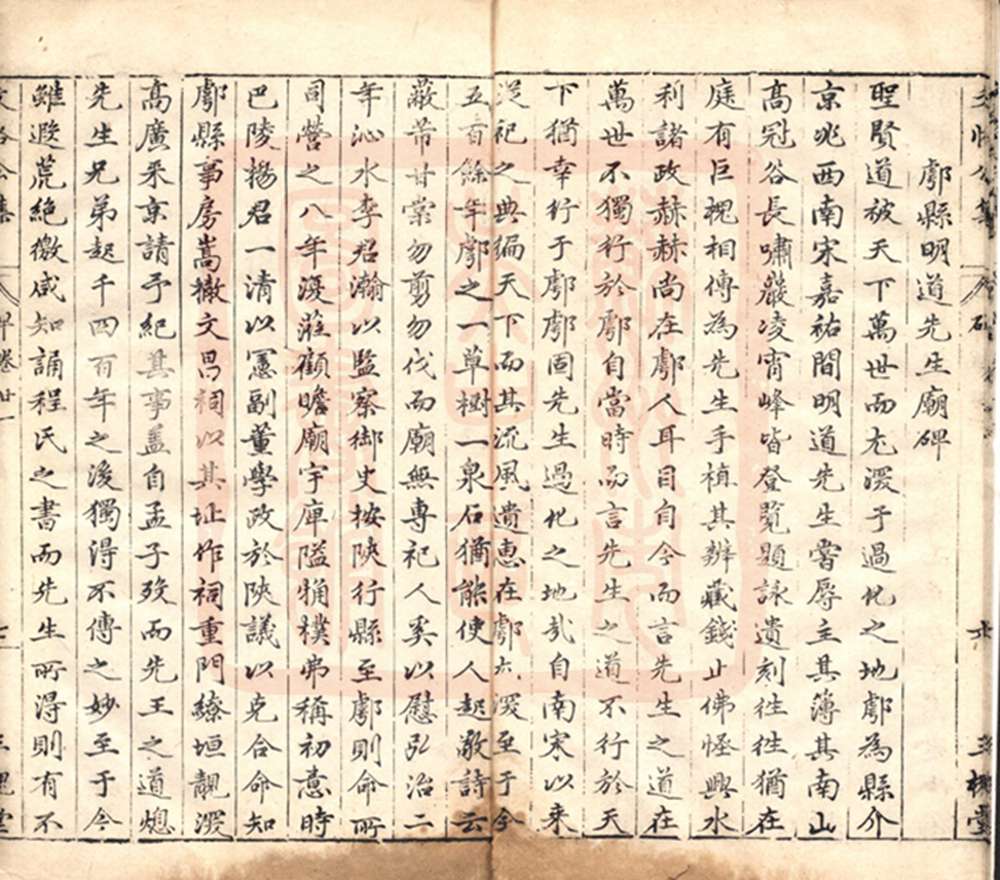 鄠縣明道先生廟碑
聖賢道被天下萬世而尤深于過化之地鄠為縣介
京兆西南宋嘉祐間明道先生嘗辱主其簿其南山
高冠谷長嘯巖凌霄峰皆登覽題詠遺刻徃徃猶在
庭有巨槐相傳為先生手植其辨藏錢止佛怪興水
利諸政赫赫尚在鄠人耳目自今而言先生之道在
萬世不獨行於鄠自當時而言先生之道不行於天
下猶幸行于鄠鄠固先生過化之地㢤自南宋以来
從祀之典徧天下而其流風遺惠在鄠尤深至于今
五百餘年鄠之一草樹一泉石猶能使人起敬詩云
蔽芾甘棠勿剪勿伐而廟無專祀人奚以慰弘治二
年沁水李君瀚以監察御史按陝行縣至鄠則命所
司營之八年復蒞顧瞻廟宇庫隘犓樸弗稱初意時
巴陵楊君一清以憲副董學政於陝議以克合命知
鄠縣事房嵩撤文昌祠以其址作祠重門繚垣靚深
高廣来京請予紀其事盖自孟子歿而先王之道熄
先生兄弟起千四百年之後獨得不傳之妙至于今
雖遐荒絕徼咸知誦程氏之書而先生所得則有不